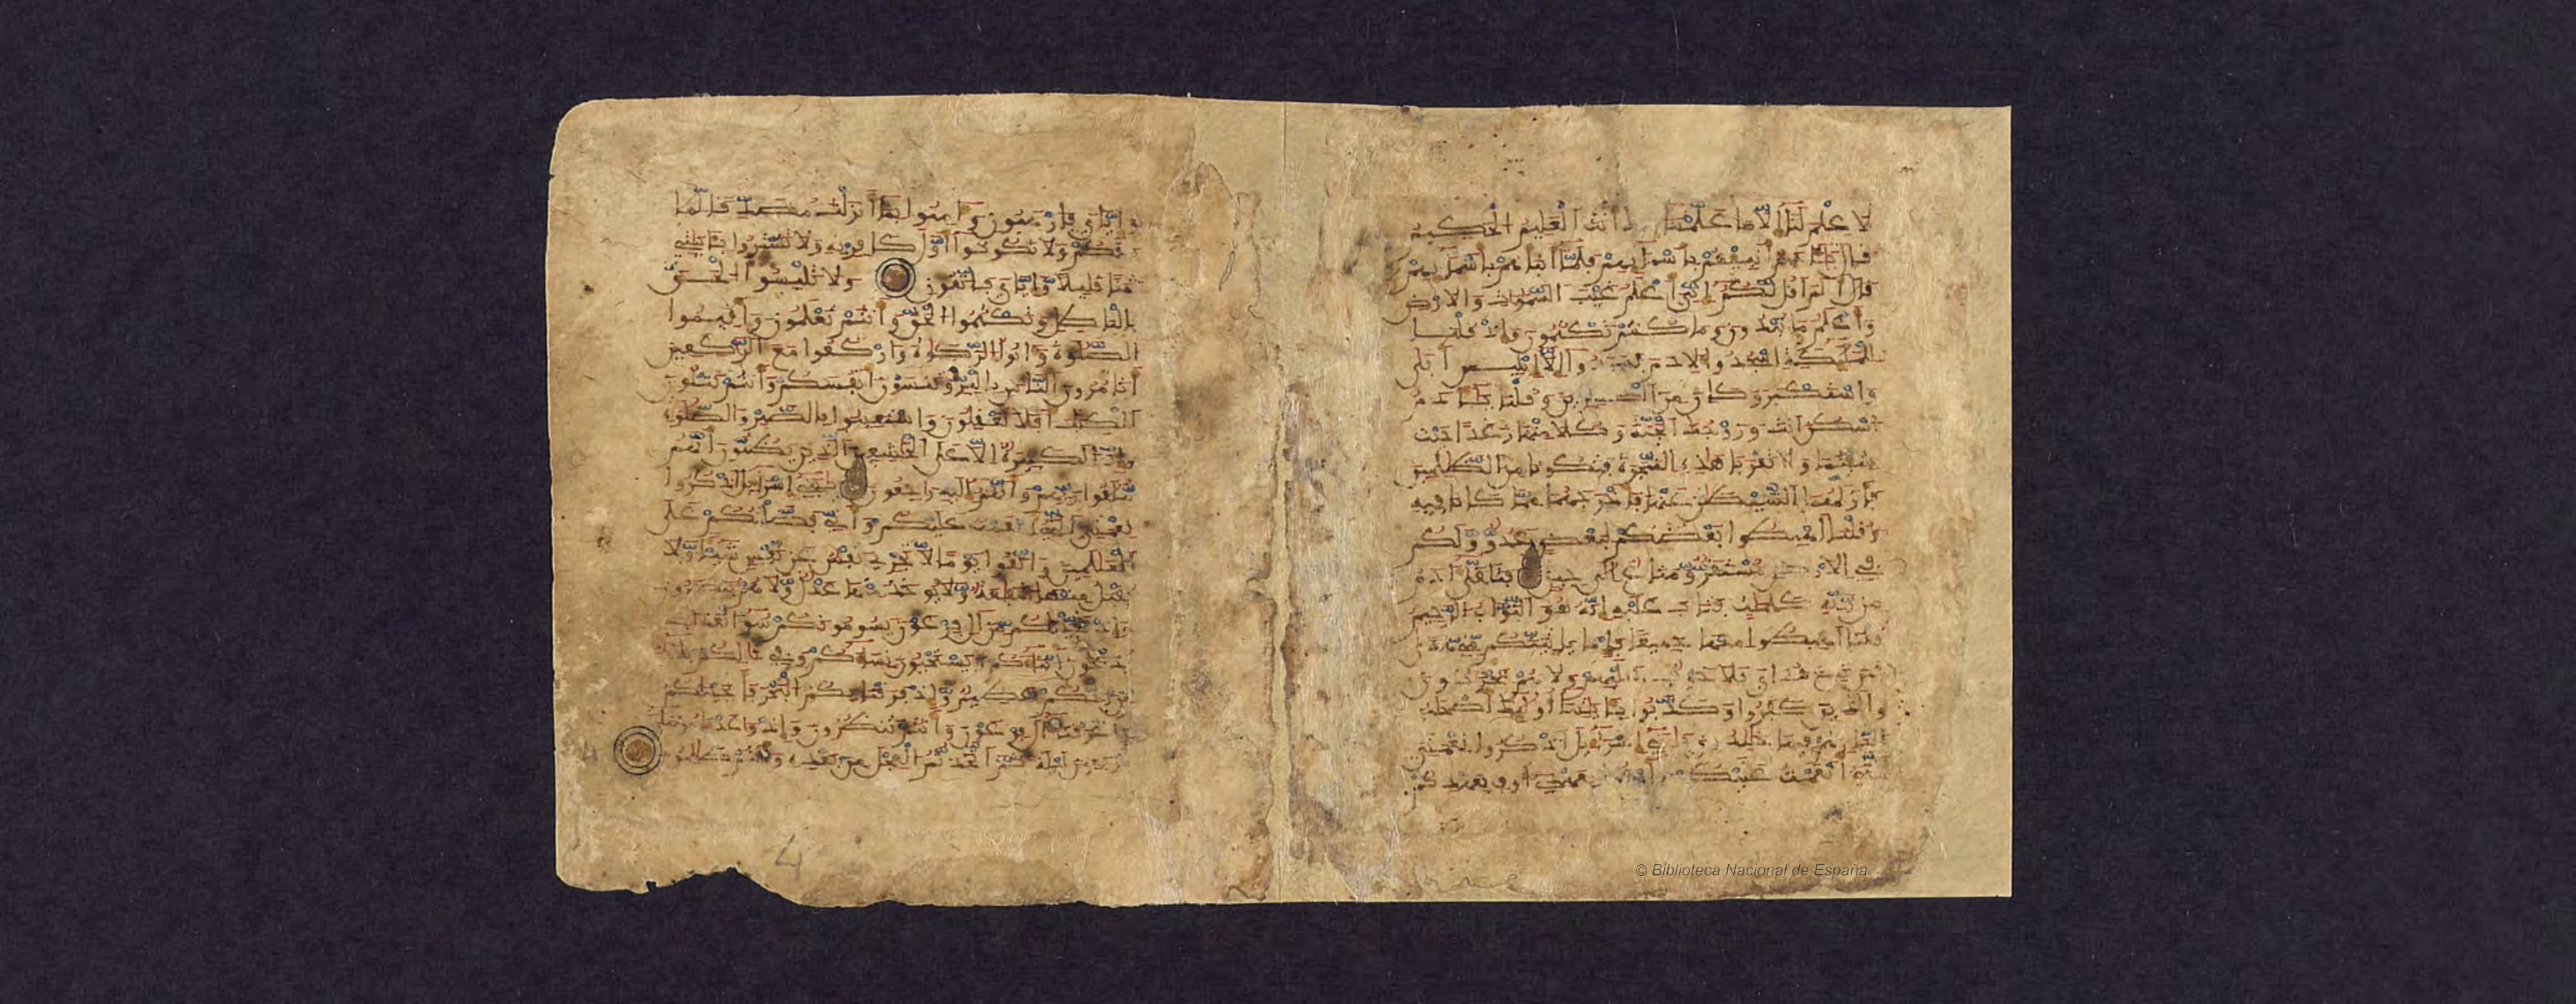 لا علم لنا الا ما علمتنا انت العليم الحكيم
قال انبيهم باسمايهم فلما انباهم باسمايهم
قال الم اقل لكم اني اعلم غيب السموات والارض
واعلم ما تبدون وما كنتم تكتمون واذ قلنا
للمليكة اسجدوا لادم فسجدوا الا ابليس ابى
واستكبر وكان من الكفرين وقلنا يادم
اسكن انت وزوجك الجنة وكلا منها رغدا حيث
شيتما ولا تقربا هذه الشجرة فتكونا من الظلمين
فازلهما الشيطن عنها فاخرجهما مما كانا فيه
وقلنا اهبطوا بعضكم لبعض عدو ولكم
في الارض مستقر ومتاع الى حين فتلقى ادم
من ربه كلمت فتاب عليه انه هو التواب الرحيم
قلنا اهبطوا منها جميعا فاما ياتينكم مني هدى
فمن تبع هداي فلا خوف عليهم ولا هم يحزنون
والذين كفروا وكذبوا بايتنا اوليك اصحب
النار هم فيها خلدون يبني اسرايل اذكروا نعمتي
التي انعمت عليكم واوفوا بعهدي اوف بعهدكم
وايي فارهبون وامنوا بما انزلت مصدقا لما
معكم ولا تكونوا اول كافر به ولا تشتروا بايتي
ثمنا قليلا وايي فاتقون ولا تلبسوا الحق
بالبطل وتكتموا الحق وانتم تعلمون واقيموا
الصلوة واتوا الزكوة واركعوا مع الركعين
اتامرون الناس بالبر وتنسون انفسكم وانتم تتلون
الكتب افلا تعقلون واستعينوا بالصبر والصلوة
وانها لكبيرة الا على الخشعين الذين يظنون انهم
ملقوا ربهم وانهم اليه رجعون يبني اسرايل اذكروا
نعمتي التي انعمت عليكم واني فضلتكم على
العلمين واتقوا يوما لا تجزي نفس عن نفس شيا ولا
يقبل منها شفعة ولا يوخذ منها عدل ولا هم ينصرون
واذ نجينكم من ال فرعون يسومونكم سو العذاب
يذبحون ابناكم ويستحيون نساكم وفي ذلكم بلا
من ربكم عظيم واذ فرقنا بكم البحر فانجينكم
واغرقنا ال فرعون وانتم تنظرون واذ وعدنا موسى
اربعين ليلة ثم اتخذتم العجل من بعده وانتم ظلمون
4
© Biblioteca Nacional de España